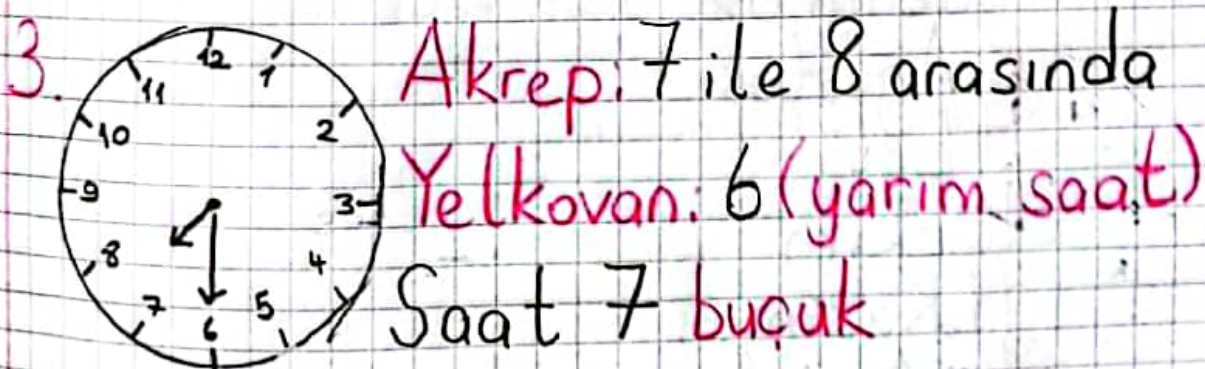 3.
12
1
2
3
4
5
6
7
8
9
10
11
Akrep: 7 ile 8 arasında
Yelkovan: 6 (yarım saat)
Saat 7 buçuk